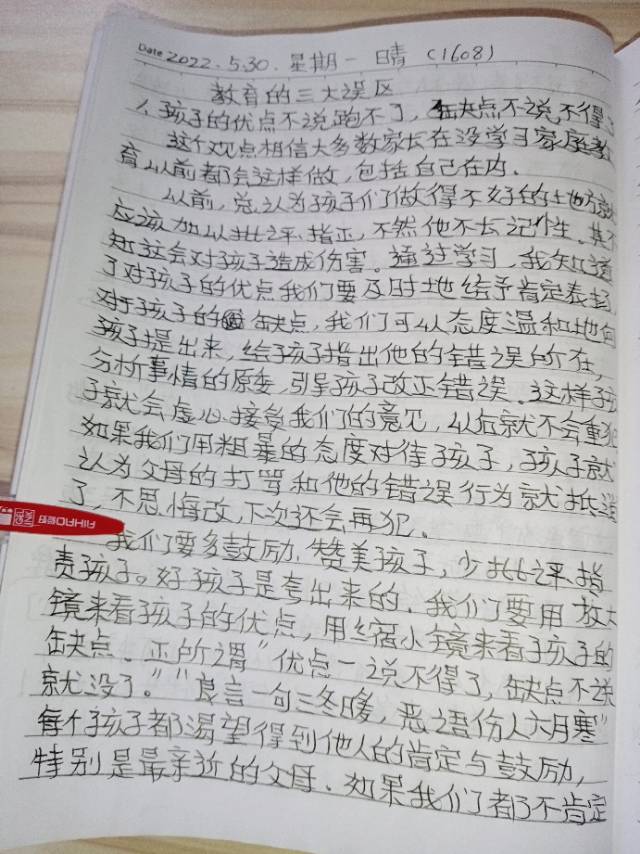 Date 2022.5.30.星期一 日晴 (1608)
教育的三大误区
1.孩子的优点不说跑不了,缺点不说不得了
这个观点相信大多数家长在没学习家庭教
育以前都会这样做,包括自己在内。
以前,总认为孩子们做得不好的地方就
应该加以批评、指正,不然他不长记性。其不
知这会对孩子造成伤害。通过学习,我知道
了对孩子的优点我们要及时地给予肯定表扬
对于孩子的缺点,我们可以态度温和地向
孩子提出来,给孩子指出他的错误所在,
分析事情的原委,引导孩子改正错误。这样孩
子就会虚心接受我们的意见,以后就不会重犯
如果我们用粗暴的态度对待孩子,孩子就
认为父母的打骂和他的错误行为就抵消
了,不思悔改,下次还会再犯。
我们要多鼓励、赞美孩子,少批评、指
责孩子。好孩子是夸出来的.我们要用放大
镜来看孩子的优点,用缩小镜来看孩子的
缺点、正所谓"优点一说不得了,缺点不说
就没了。""良言一句三冬暖,恶语伤人六月寒"
每个孩子都渴望得到他人的肯定与鼓励,
特别是最亲近的父母、如果我们都不肯定
AIHAO